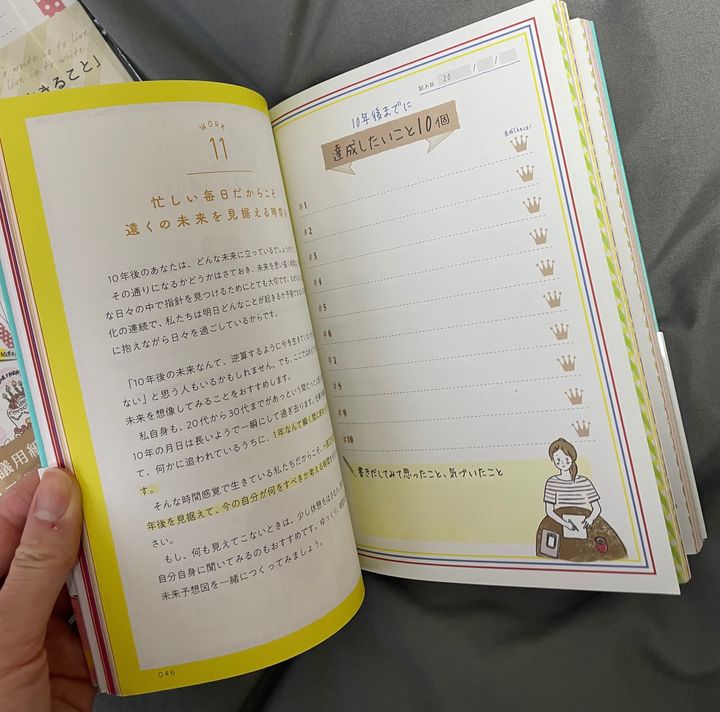 is to live
live is to write.
きること」
WORK
11
忙しい毎日だからこそ
遠くの未来を見据える時間を
10年後のあなたは、どんな未来に立っているでしょうか。
その通りになるかどうかはさておき、未来を思い描く時間は
な日々の中で指針を見つけるためにとても大切です。
化の連続で、私たちは明日どんなことが起きるか予測
に抱えながら日々を過ごしているからです。
「10年後の未来なんて、逆算するように今を生きてい
ない」と思う人もいるかもしれません。でも、ここでは
未来を想像してみることをおすすめします。
私自身も、20代から30代まであっという間だった
10年の月日は長いようで一瞬にして過ぎ去ります。
て、何かに追われているうちに、1年なんて瞬く間に
す。
そんな時間感覚で生きている私たちだからこそ、
年後を見据えて、今の自分が何をすべきか考える時間を
さい。
もし、何も見えてこないときは、少し休憩を
自分自身に聞いてみるのもおすすめです。ゆっくり、
未来予想図を一緒につくってみましょう。
046
記入日 20 / /
10年後までに
達成したいこと10個
達成Check!
#1
#2
#3
#4
#5
#6
#7
#8
#9
#10
書きだしてみて思ったこと、気づいたこと
議用紙